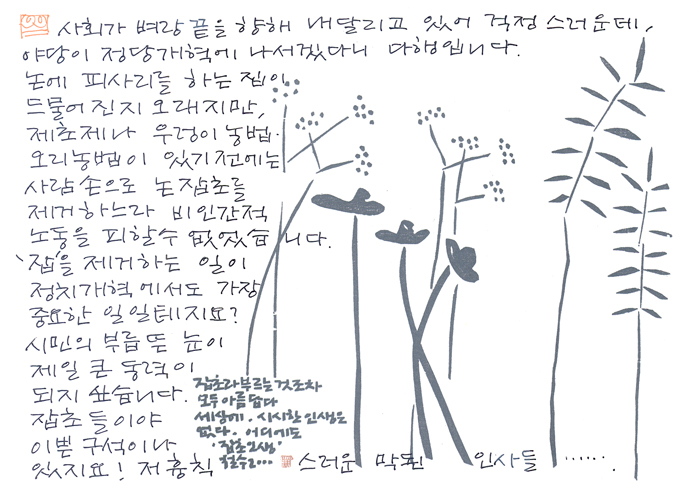 사회가 벼랑 끝을 향해 내달리고 있어 걱정스러운데,
야당이 정당개혁에 나서겠다니 다행입니다.
논에 피사리를 하는 집이
드물어진지 오래지만,
제초제나 우렁이 농법·
오리농법이 있기 전에는
사람손으로 논잡초를
제거하느라 비인간적
노동을 피할수 없었습니다.
'잡'을 제거하는 일이
정치개혁에서도 가장
중요한 일일테지요?
시민의 부릅뜬 눈이
제일 큰 동력이
되지 싶습니다.
잡초들이야
이쁜 구석이나
있지요! 저 흉칙스러운 막된 인사들 …….
잡초라 부르는 것조차
모두 아름답다
세상에, 시시한 인생은
없다. 어디에도
'잡초인생'
철수2...